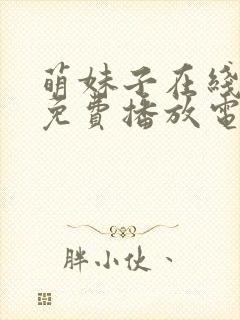 萌妹子在线
免費播放電
胖小伙、